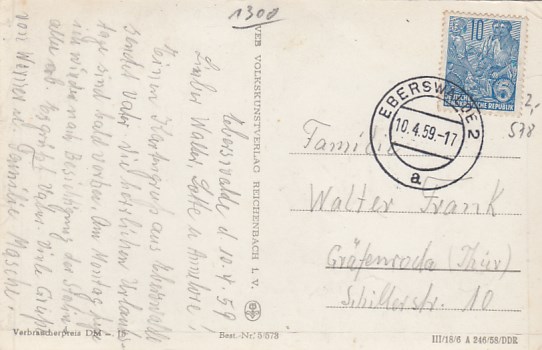 1308
Eberswalde d 10.4.59
Lieber Walter, Lotte u Annelore!
Einen Kartengruß aus Eberswalde
sendet Vater. Die herrlichen Urlaubs-
tage sind bald vorbei. Am Montag
ich wieder nach Besichtigung der
alle ab. Es grüßt Vater. Viele Grüße
von Werner u. Familie Masche.
Verbraucherpreis DM –.15
VEB VOLKSKUNSTVERLAG REICHENBACH I. V.
Best.-Nr. 5/573
10
DEUTSCHE DEMOKRATISCHE REPUBLIK
EBERSWALDE 2
10.4.59.-17
a
2,-
578
Familie
Walter Frank
Gräfenroda (Thür)
Schillerstr. 10
III/18/6 A 246/58/DDR